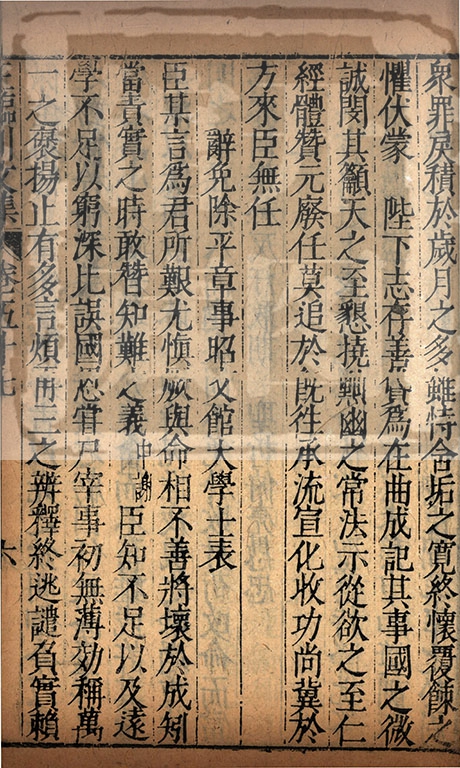 衆罪戾積於歲月之多雖恃含垢之寛終懷覆餗之
懼伏蒙　陛下志存善貸為在曲成記其事國之微
誠閔其籲天之至懇撓黜幽之常法示從欲之至仁
經體贊元廢任莫追於旣往承流宣化收功尚冀於
方來臣無任
辭免除平章事昭文館大學士表
臣某言為君所艱尤愼厥與命相不善將壞於成矧
當責實之時敢替知難之義中謝臣知不足以及遠
學不足以窮深比誤國恩嘗尸宰事初無薄効稱萬
一之褒揚止有多言煩再三之辨釋終逃譴負實賴
王臨川文集　卷五十七　六